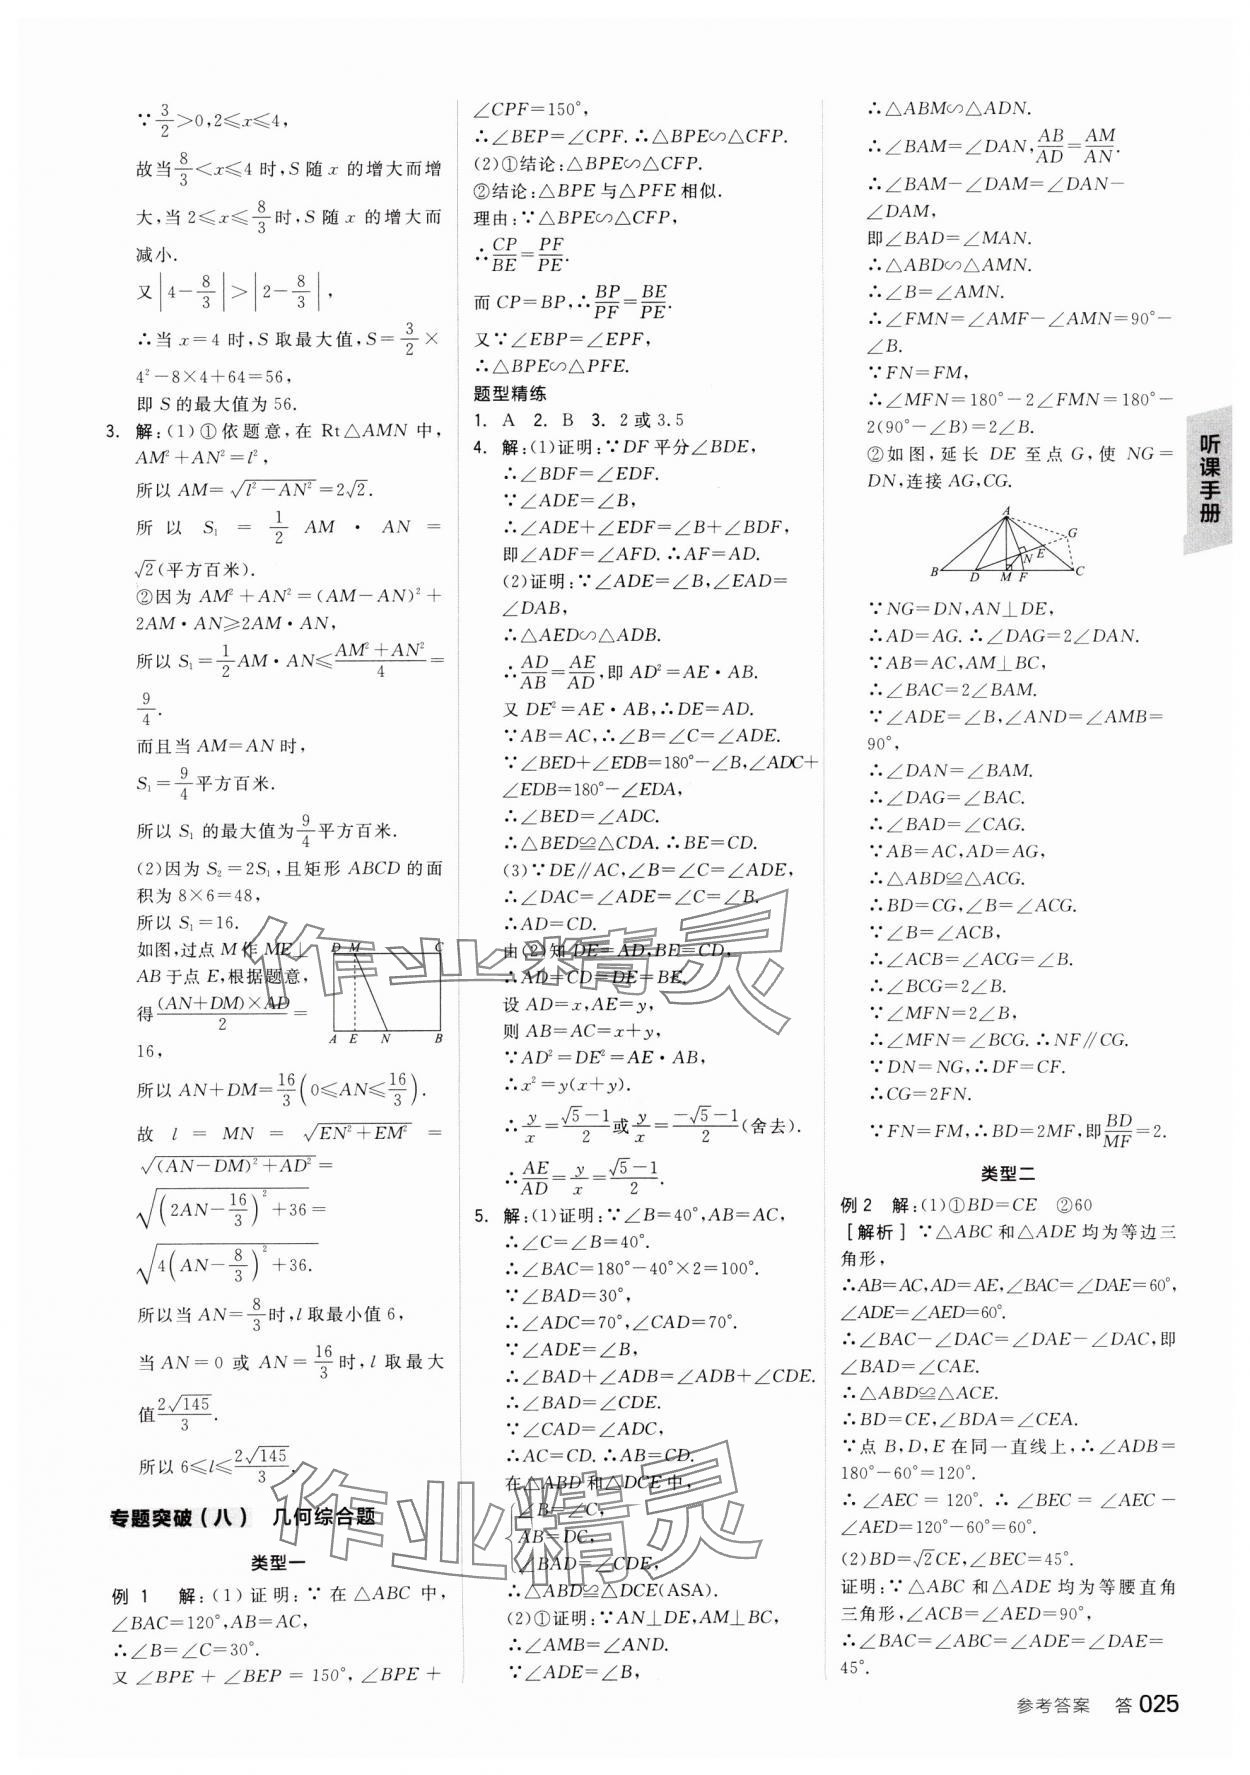 ∵3/2>0,2≤x≤4,
故当8/3<x≤4时,S随x的增大而增
大,当2≤x≤8/3时,S随x的增大而
减小.
又|4-8/3|>|2-8/3|,
∴当x=4时,S取最大值,S=3/2×
4²-8×4+64=56,
即S的最大值为56.
3. 解:(1)①依题意,在Rt△AMN中,
AM²+AN²=l²,
所以AM=√(l²-AN²)=2√2.
所以 S₁ = 1/2 AM·AN =
√2(平方百米).
②因为AM²+AN²=(AM-AN)²+
2AM·AN≥2AM·AN,
所以S₁=1/2AM·AN≤(AM²+AN²)/4=
9/4.
而且当AM=AN时,
S₁=9/4平方百米.
所以S₁的最大值为9/4平方百米.
(2)因为S₂=2S₁,且矩形ABCD的面
积为8×6=48,
所以S₁=16.
如图,过点M作ME⊥
AB于点E,根据题意,
得(AN+DM)×AD/2=
16,
D M C
A E N B
所以AN+DM=16/3(0≤AN≤16/3).
故 l = MN = √(EN²+EM²) =
√((AN-DM)²+AD²)=
√((2AN-16/3)²+36)=
√(4(AN-8/3)²+36).
所以当AN=8/3时,l取最小值6,
当AN=0或AN=16/3时,l取最大
值2√145/3.
所以6≤l≤2√145/3.
专题突破(八) 几何综合题
类型一
例1 解:(1)证明:∵在△ABC中,
∠BAC=120°,AB=AC,
∴∠B=∠C=30°.
又∠BPE+∠BEP=150°,∠BPE+
∠CPF=150°,
∴∠BEP=∠CPF.∴△BPE∽△CFP.
(2)①结论:△BPE∽△CFP.
②结论:△BPE与△PFE相似.
理由:∵△BPE∽△CFP,
∴CP/BE=PF/PE.
而CP=BP,∴BP/PF=BE/PE.
又∵∠EBP=∠EPF,
∴△BPE∽△PFE.
题型精练
1. A 2. B 3. 2或3.5
4. 解:(1)证明:∵DF平分∠BDE,
∴∠BDF=∠EDF.
∵∠ADE=∠B,
∴∠ADE+∠EDF=∠B+∠BDF,
即∠ADF=∠AFD.∴AF=AD.
(2)证明:∵∠ADE=∠B,∠EAD=
∠DAB,
∴△AED∽△ADB.
∴AD/AB=AE/AD,即AD²=AE·AB.
又DE²=AE·AB,∴DE=AD.
∵AB=AC,∴∠B=∠C=∠ADE.
∵∠BED+∠EDB=180°-∠B,∠ADC+
∠EDB=180°-∠EDA,
∴∠BED=∠ADC.
∴△BED≌△CDA.∴BE=CD.
(3)∵DE∥AC,∠B=∠C=∠ADE,
∴∠DAC=∠ADE=∠C=∠B.
∴AD=CD.
由(2)知DE=AD,BE=CD,
∴AD=CD=DE=BE.
设AD=x,AE=y,
则AB=AC=x+y,
∵AD²=DE²=AE·AB,
∴x²=y(x+y).
∴y/x=(√5-1)/2或y/x=(-√5-1)/2(舍去).
∴AE/AD=y/x=(√5-1)/2.
5. 解:(1)证明:∵∠B=40°,AB=AC,
∴∠C=∠B=40°.
∴∠BAC=180°-40°×2=100°.
∵∠BAD=30°,
∴∠ADC=70°,∠CAD=70°.
∵∠ADE=∠B,
∴∠BAD+∠ADB=∠ADB+∠CDE.
∴∠BAD=∠CDE.
∵∠CAD=∠ADC,
∴AC=CD.∴AB=CD.
在△ABD和△DCE中,
{∠B=∠C,
AB=DC,
∠BAD=∠CDE,
∴△ABD≌△DCE(ASA).
(2)①证明:∵AN⊥DE,AM⊥BC,
∴∠AMB=∠AND.
∵∠ADE=∠B,
∴△ABM∽△ADN.
∴∠BAM=∠DAN,AB/AD=AM/AN.
∴∠BAM-∠DAM=∠DAN-
∠DAM,
即∠BAD=∠MAN.
∴△ABD∽△AMN.
∴∠B=∠AMN.
∴∠FMN=∠AMF-∠AMN=90°-
∠B.
∵FN=FM,
∴∠MFN=180°-2∠FMN=180°-
2(90°-∠B)=2∠B.
②如图,延长DE至点G,使NG=
DN,连接AG,CG.
A
G
N E
B D M F C
∵NG=DN,AN⊥DE,
∴AD=AG.∴∠DAG=2∠DAN.
∵AB=AC,AM⊥BC,
∴∠BAC=2∠BAM.
∵∠ADE=∠B,∠AND=∠AMB=
90°,
∴∠DAN=∠BAM.
∴∠DAG=∠BAC.
∴∠BAD=∠CAG.
∵AB=AC,AD=AG,
∴△ABD≌△ACG.
∴BD=CG,∠B=∠ACG.
∵∠B=∠ACB,
∴∠ACB=∠ACG=∠B.
∴∠BCG=2∠B.
∵∠MFN=2∠B,
∴∠MFN=∠BCG.∴NF∥CG.
∵DN=NG,∴DF=CF.
∴CG=2FN.
∵FN=FM,∴BD=2MF,即BD/MF=2.
类型二
例2 解:(1)①BD=CE ②60
[解析]∵△ABC和△ADE均为等边三
角形,
∴AB=AC,AD=AE,∠BAC=∠DAE=60°,
∠ADE=∠AED=60°.
∴∠BAC-∠DAC=∠DAE-∠DAC,即
∠BAD=∠CAE.
∴△ABD≌△ACE.
∴BD=CE,∠BDA=∠CEA.
∵点B,D,E在同一直线上,∴∠ADB=
180°-60°=120°.
∴∠AEC=120°.∴∠BEC=∠AEC-
∠AED=120°-60°=60°.
(2)BD=√2CE,∠BEC=45°.
证明:∵△ABC和△ADE均为等腰直角
三角形,∠ACB=∠AED=90°,
∴∠BAC=∠ABC=∠ADE=∠DAE=
45°.
听课手册
参考答案 答025
作业精灵
作业精灵